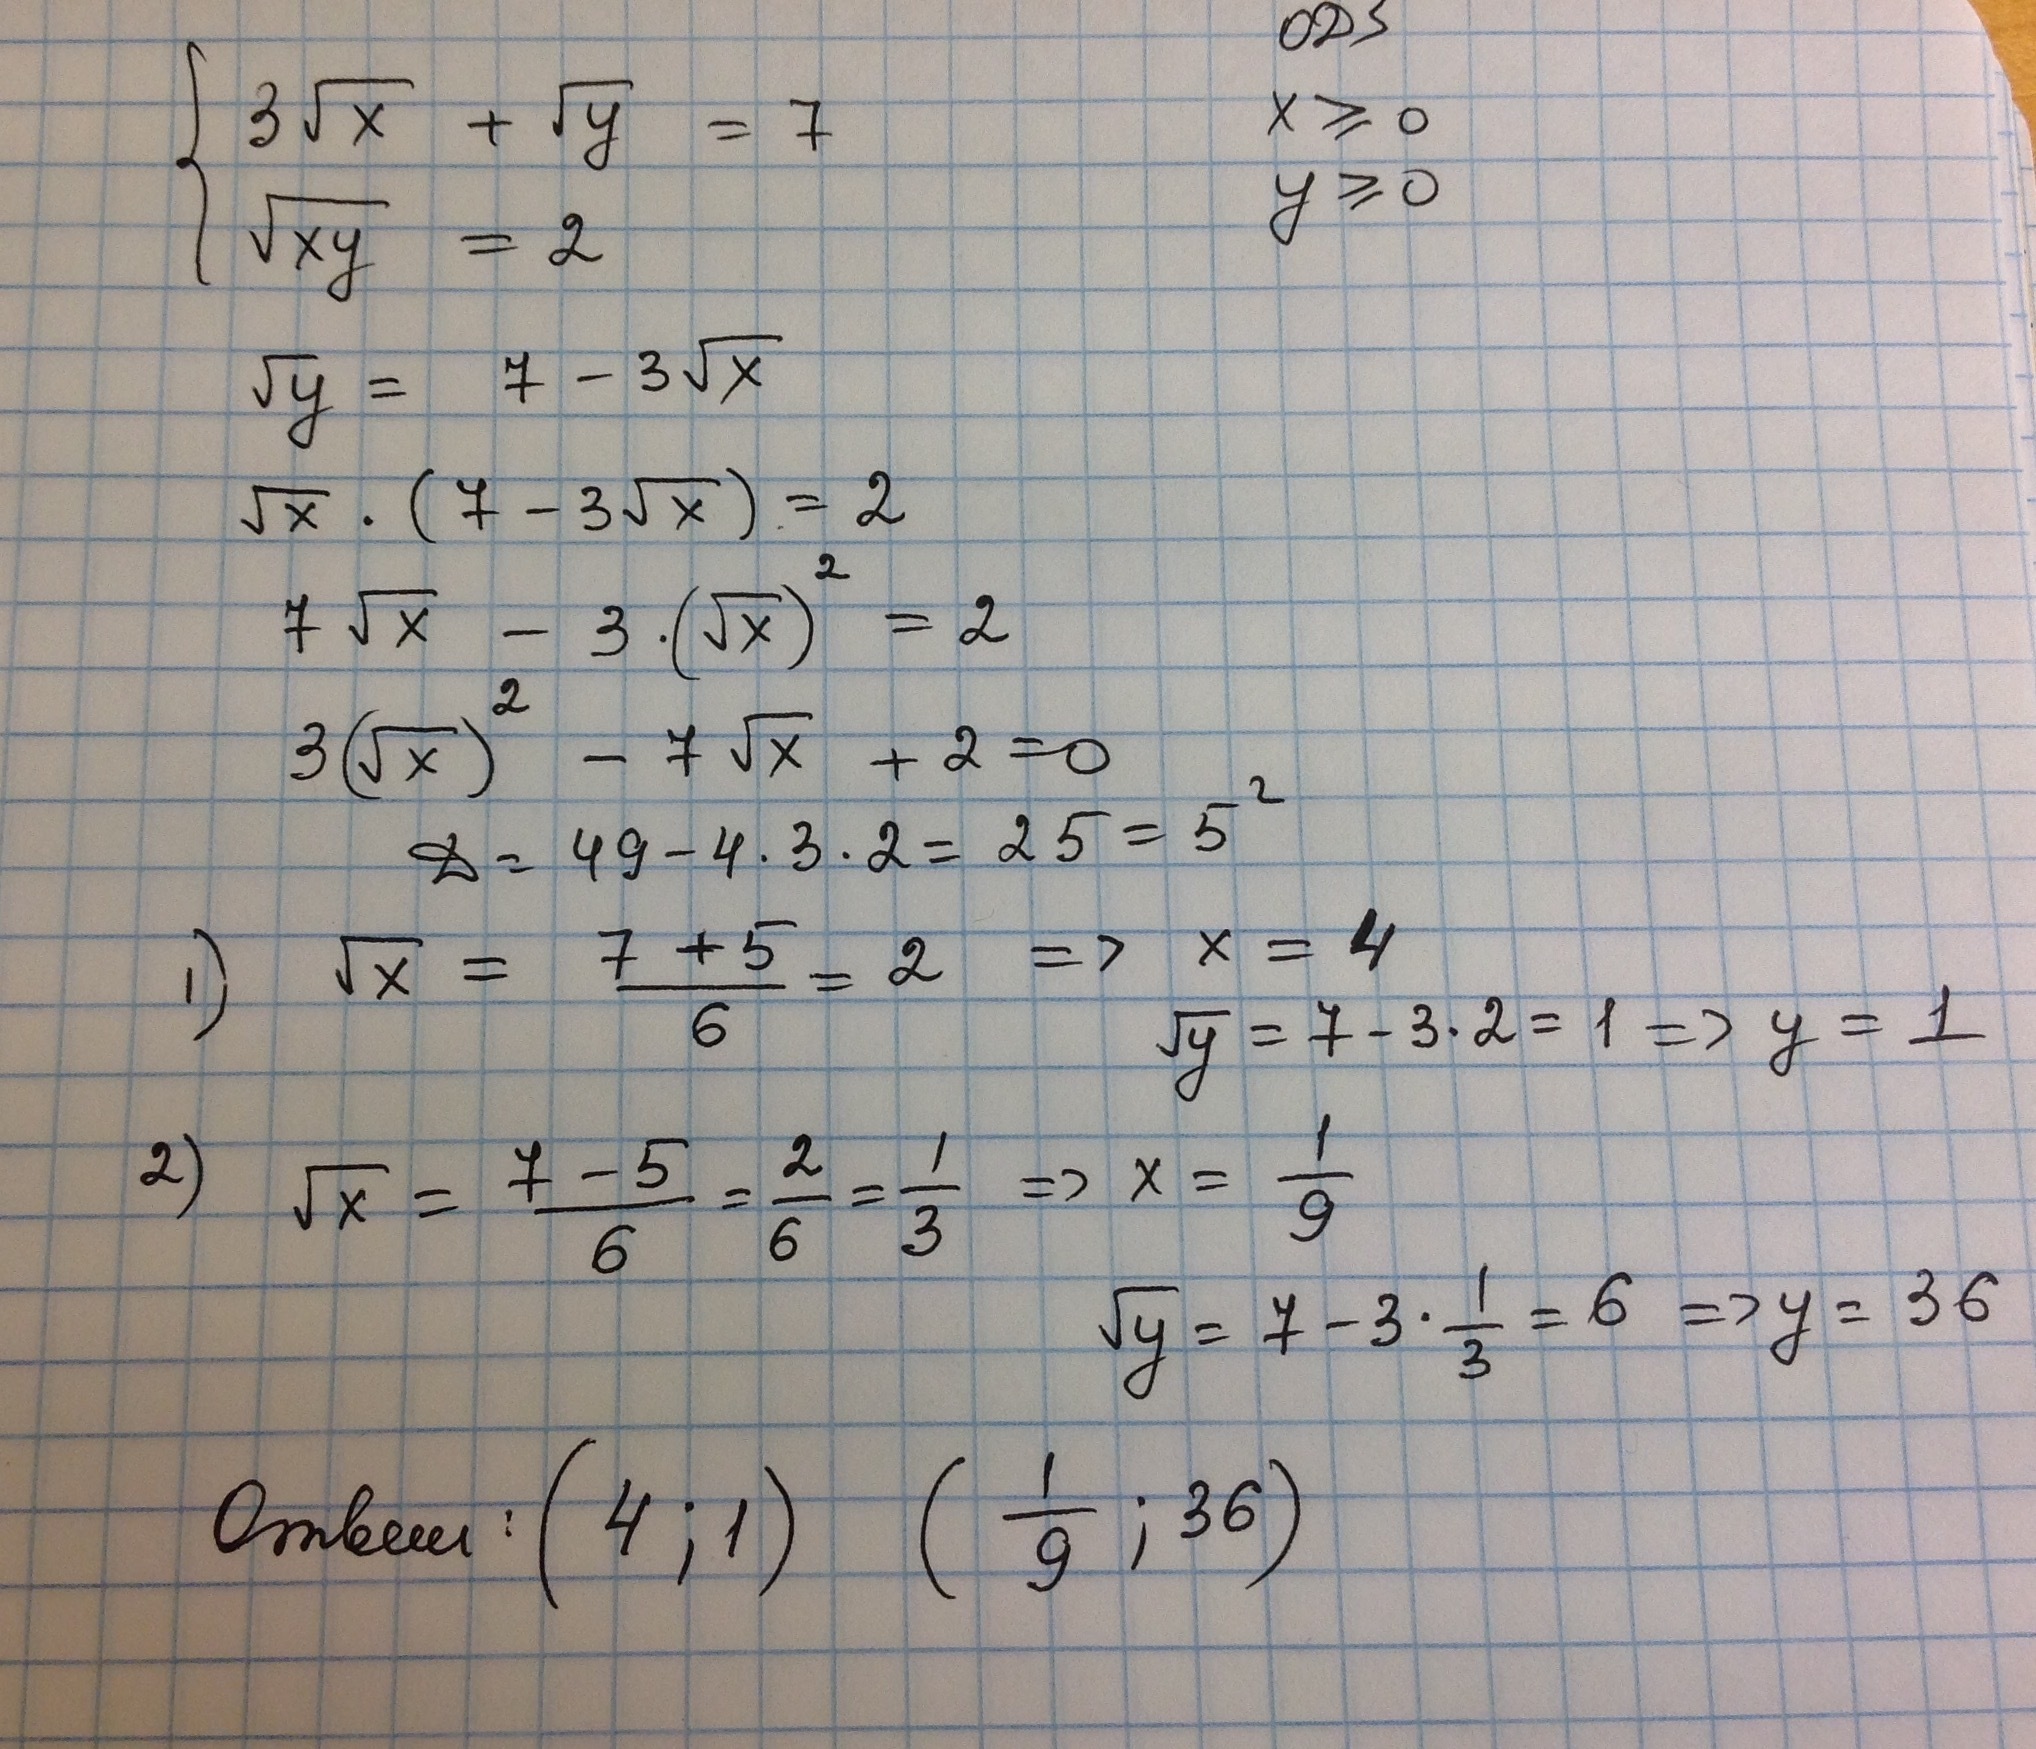 ОДЗ
3√x + √y = 7
x ⩾ 0
√xy = 2
y ⩾ 0
√y = 7 - 3√x
√x · (7 - 3√x) = 2
7√x - 3·(√x)² = 2
3(√x)² - 7√x + 2 = 0
D = 49 - 4·3·2 = 25 = 5²
1) √x = (7 + 5)/6 = 2 => x = 4
√y = 7 - 3·2 = 1 => y = 1
2) √x = (7 - 5)/6 = 2/6 = 1/3 => x = 1/9
√y = 7 - 3·1/3 = 6 => y = 36
Ответ: (4; 1) (1/9; 36)